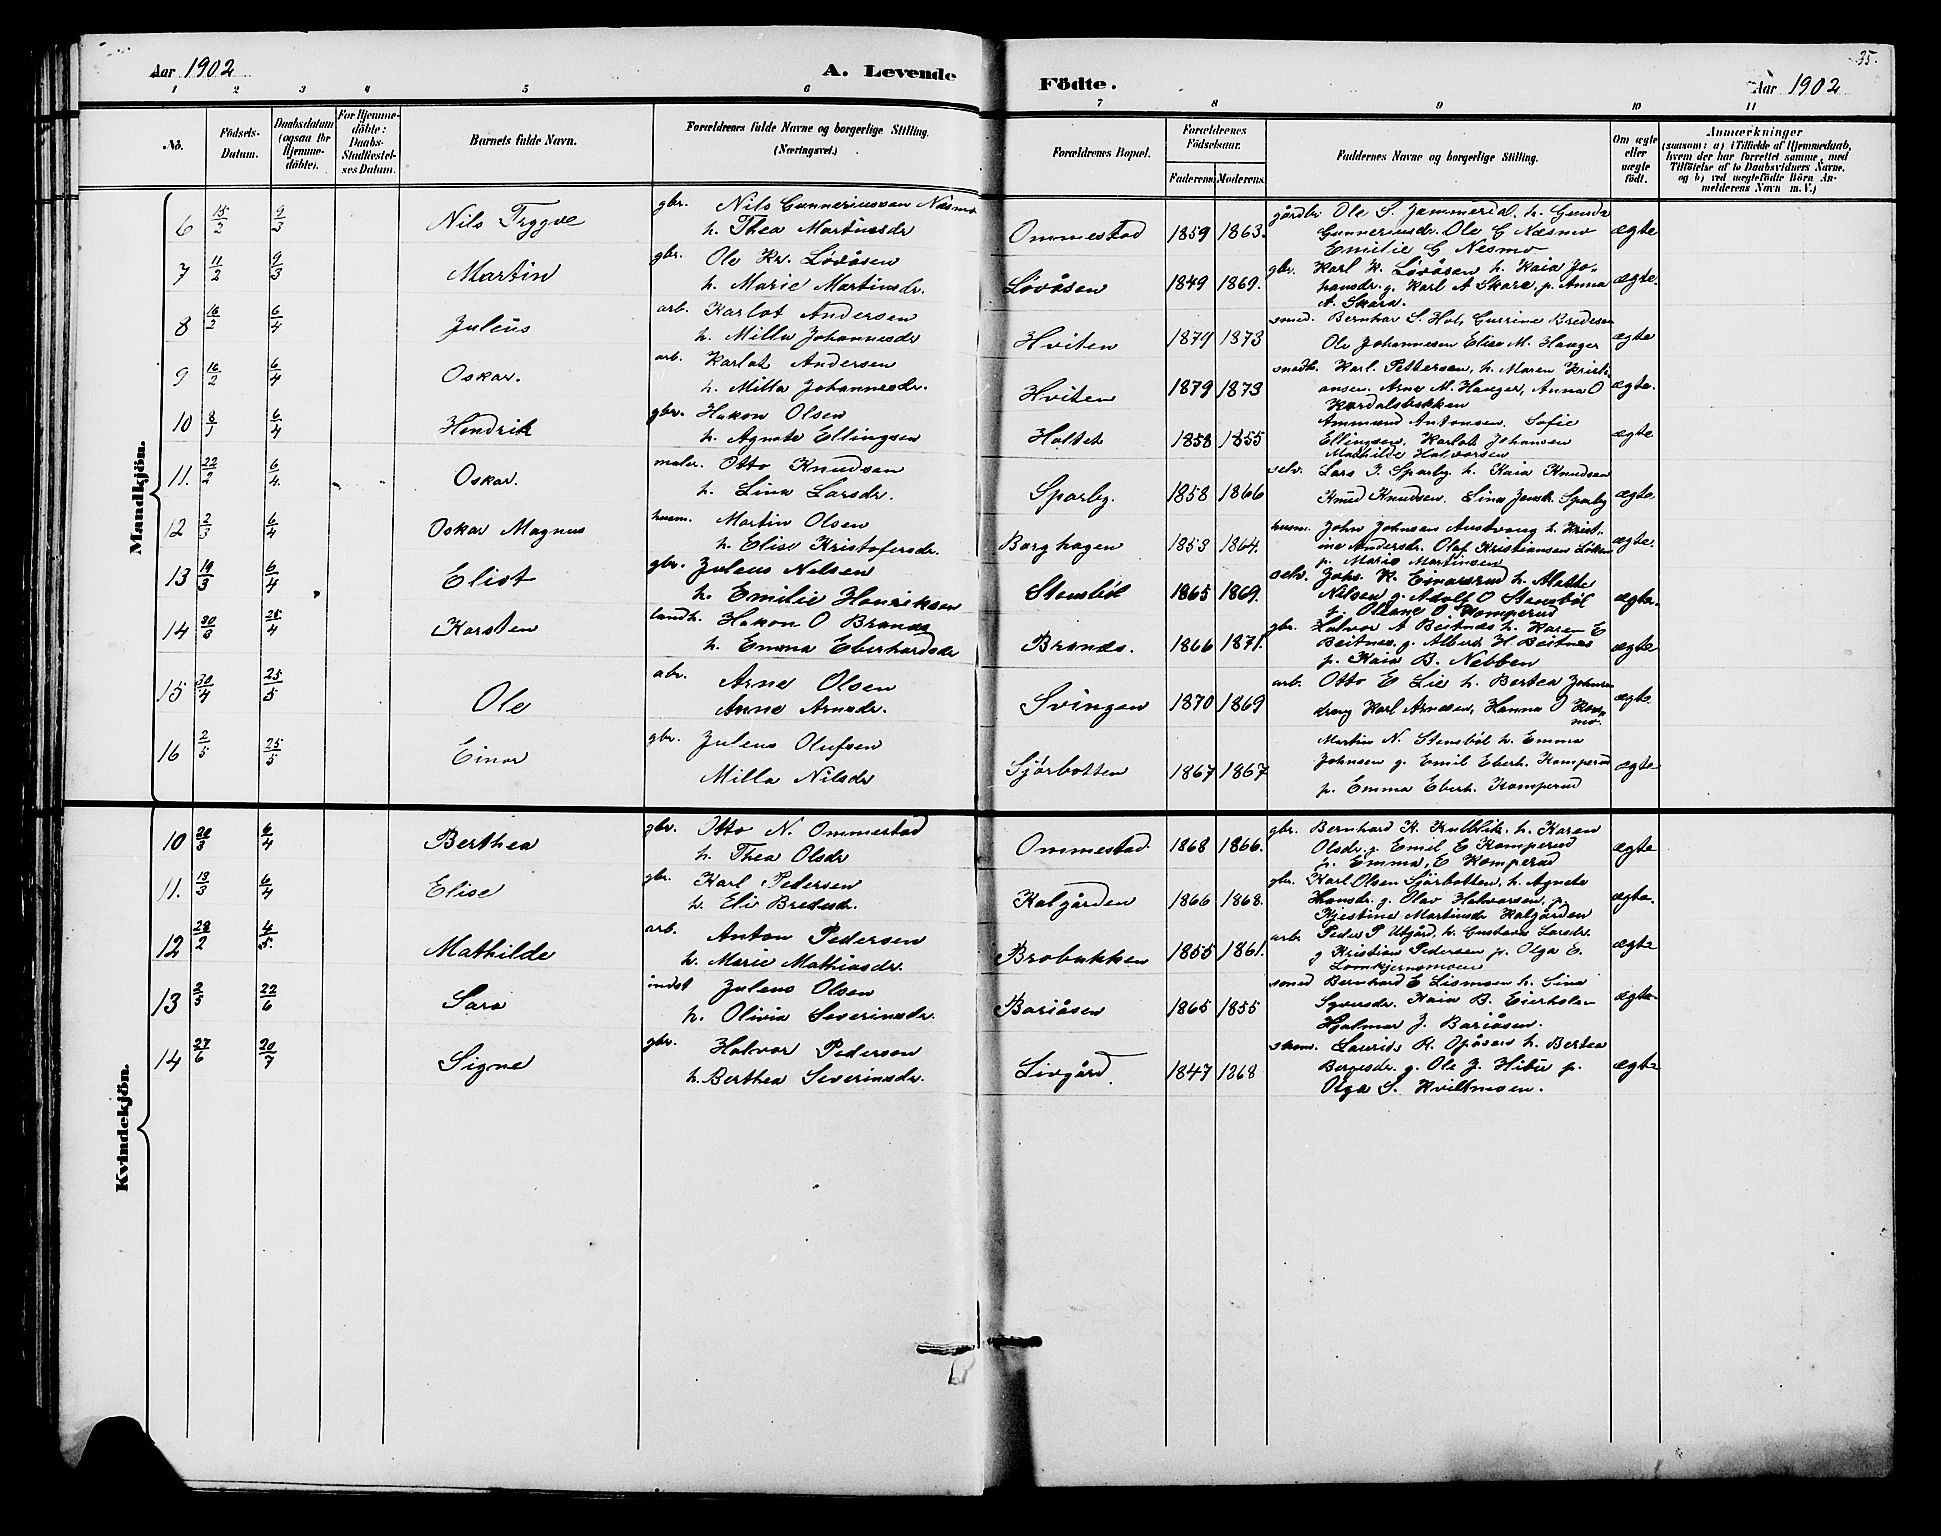 Aar 1902
A. Levende
Födte.
Aar 1902
35.
1 2 3 4 5 6 7 8 9 10 11
No.
Födsels-Datum.
Daabsdatum (ogsaa for Hjemmedöbte).
For Hjemmedöbte: Daabs-Stadfæstelses Datum.
Barnets fulde Navn.
Forældrenes fulde Navne og borgerlige Stilling. (Næringsvei.)
Forældrenes Bopæl.
Forældrenes Födselsaar.
Faderens. Moderens.
Faddernes Navne og borgerlige Stilling.
Om ægte eller uægte födt.
Anmærkninger
(saasom: a) i Tilfælde af Hjemmedaab, hvem der har forrettet samme, med Tilföielse af to Daabsvidners Navne, og b) ved uægtefödte Börn Anmelderens Navn m. V.)
Mandkjön.
6 15/2 9/3 Nils Tryggve gbr. Nils Gunneriussen Næsmo
h. Thea Martinsdr Ommestad 1859 1863. gårdbr Ole S. Jammerdal, h. Gunda
Gunneriusdr. Ole G Næsmo
Emilie G Nesmo ægte
7 11/2 9/3 Martin gbr. Ole Kr. Løvåsen
h. Marie Martinsdr. Løvåsen 1849 1869. gbr. Karl K. Løvåsen h. Kaia Jo-
hansdr. g. Karl A Skara, p. Anna
A. Skara. ægte.
8 16/2 6/4 Juleus arb. Karlot Andersen
h. Milla Johannesdr Hviten 1879 1873 smed. Bernhar S. Hol, Gurrine Bredesen
Ole Johannesen Elise M. Hauger ægte
9 16/2 6/4 Oskar. arb. Karlot Andersen
h. Milla Johannesdr. Hviten 1879 1873 snedk. Karl Pettersen, h. Maren Kristi-
ansen. Arne M. Hauger, Anna O
Kordalsbakken ægte.
10 8/1 6/4 Hendrik gbr. Hakon Olsen
h. Agnete Ellingsen Holtet 1858 1855 Ammund Antonsen. Sofie
Ellingsen, Karlot Johansen
Mathilde Halvorsen ægte
11. 22/2 6/4. Oskar. maler. Otto Knudsen
h. Lina Larsdr. Sparby. 1858 1866 selv. Lars J. Sparby h. Kaia Knudsen
Knud Knudsen. Lina Sparby ægte
12 2/3 6/4 Oskar Magnus husm. Martin Olsen
h. Elise Kristofersdr. Borghagen 1853 1864. husm. John Johnsen Austvang h. Krist-
ine Andersdr. Olaf Kristiansen Løken
p. Marie Martinsen ægte.
13 19/3 6/4 Eliot gbr. Juleus Nilsen
h. Emilie Henriksen Stensböl 1865 1869. selv. Johs. K. Einarsrud h. Alette
Nilsen g. Adolf O Stensböl
p. Oliane O Komperud ægte.
14 30/3 25/4 Karsten landh. Hakon O Branes
h. Emma Eberhardsdr Branes. 1866 1871. gbr. Halvor A Beitnes h. Karen E
Beitnes. g. Albert H Beitnes
p. Kaia B. Nebben ægte
15 30/4 25/5 Ole abr. Arne Olsen
Anne Arnesdr. Svingen 1870 1869 arb. Otto E Lie h. Bertea Johnsen
dreng Karl Arnesen, Hanna O ægte
16 2/5 25/5 Einar gbr. Juleus Olufsen
Milla Nilsdr Sjörbotten 1867 1867 Martin N. Stensböl h. Emma
Johnsen g. Emil Eberh. Komperud
p. Emma Eberh. Komperud ægte
Kvindekjön.
10 20/3 6/4 Berthea gbr. Otto N. Ommestad
h. Thea Olsdr Ommestad 1868 1866. gbr. Bernhard K. Kulblik. h. Karen
Olsdr. g. Emil E Komperud
p. Emma, E Komperud ægte
11. 13/3 6/4 Elise gbr. Karl Pedersen
h. Eli Bredesdr. Kalgården 1866 1868. gbr. Karl Olsen Sjörbotten, h. Agnete
Hansdr. g. Olav Halvorsen, p.
Kjestine Martinsdr Kalgården ægte.
12 28/2 4/5 Mathilde arb. Anton Pedersen
h. Marie Mathiasdr. Brobakken 1855 1861. arb. Peder P Utgård. h. Gustava Larsdr.
g Kristian Pedersen p. Olga E.
Lomkjernsmoen ægte
13 2/5 22/6 Sara indst Juleus Olsen
h. Olivia Severinsdr. Bariåsen 1865 1855 smed Bernhard E Lismoen h. Lina
Syversdr. Kaia B. Eierholen
Hjalmar J. Bariåsen. ægte
14 27/6 20/7 Signe gbr. Halvor Pedersen
h. Berthea Severinsdr. Livgård 1847 1868 skom. Laurids R. Opåsen h. Bertea
Bergesdr. g. Ole J. Hibu p.
Olga S. Kviltmoen. ægte